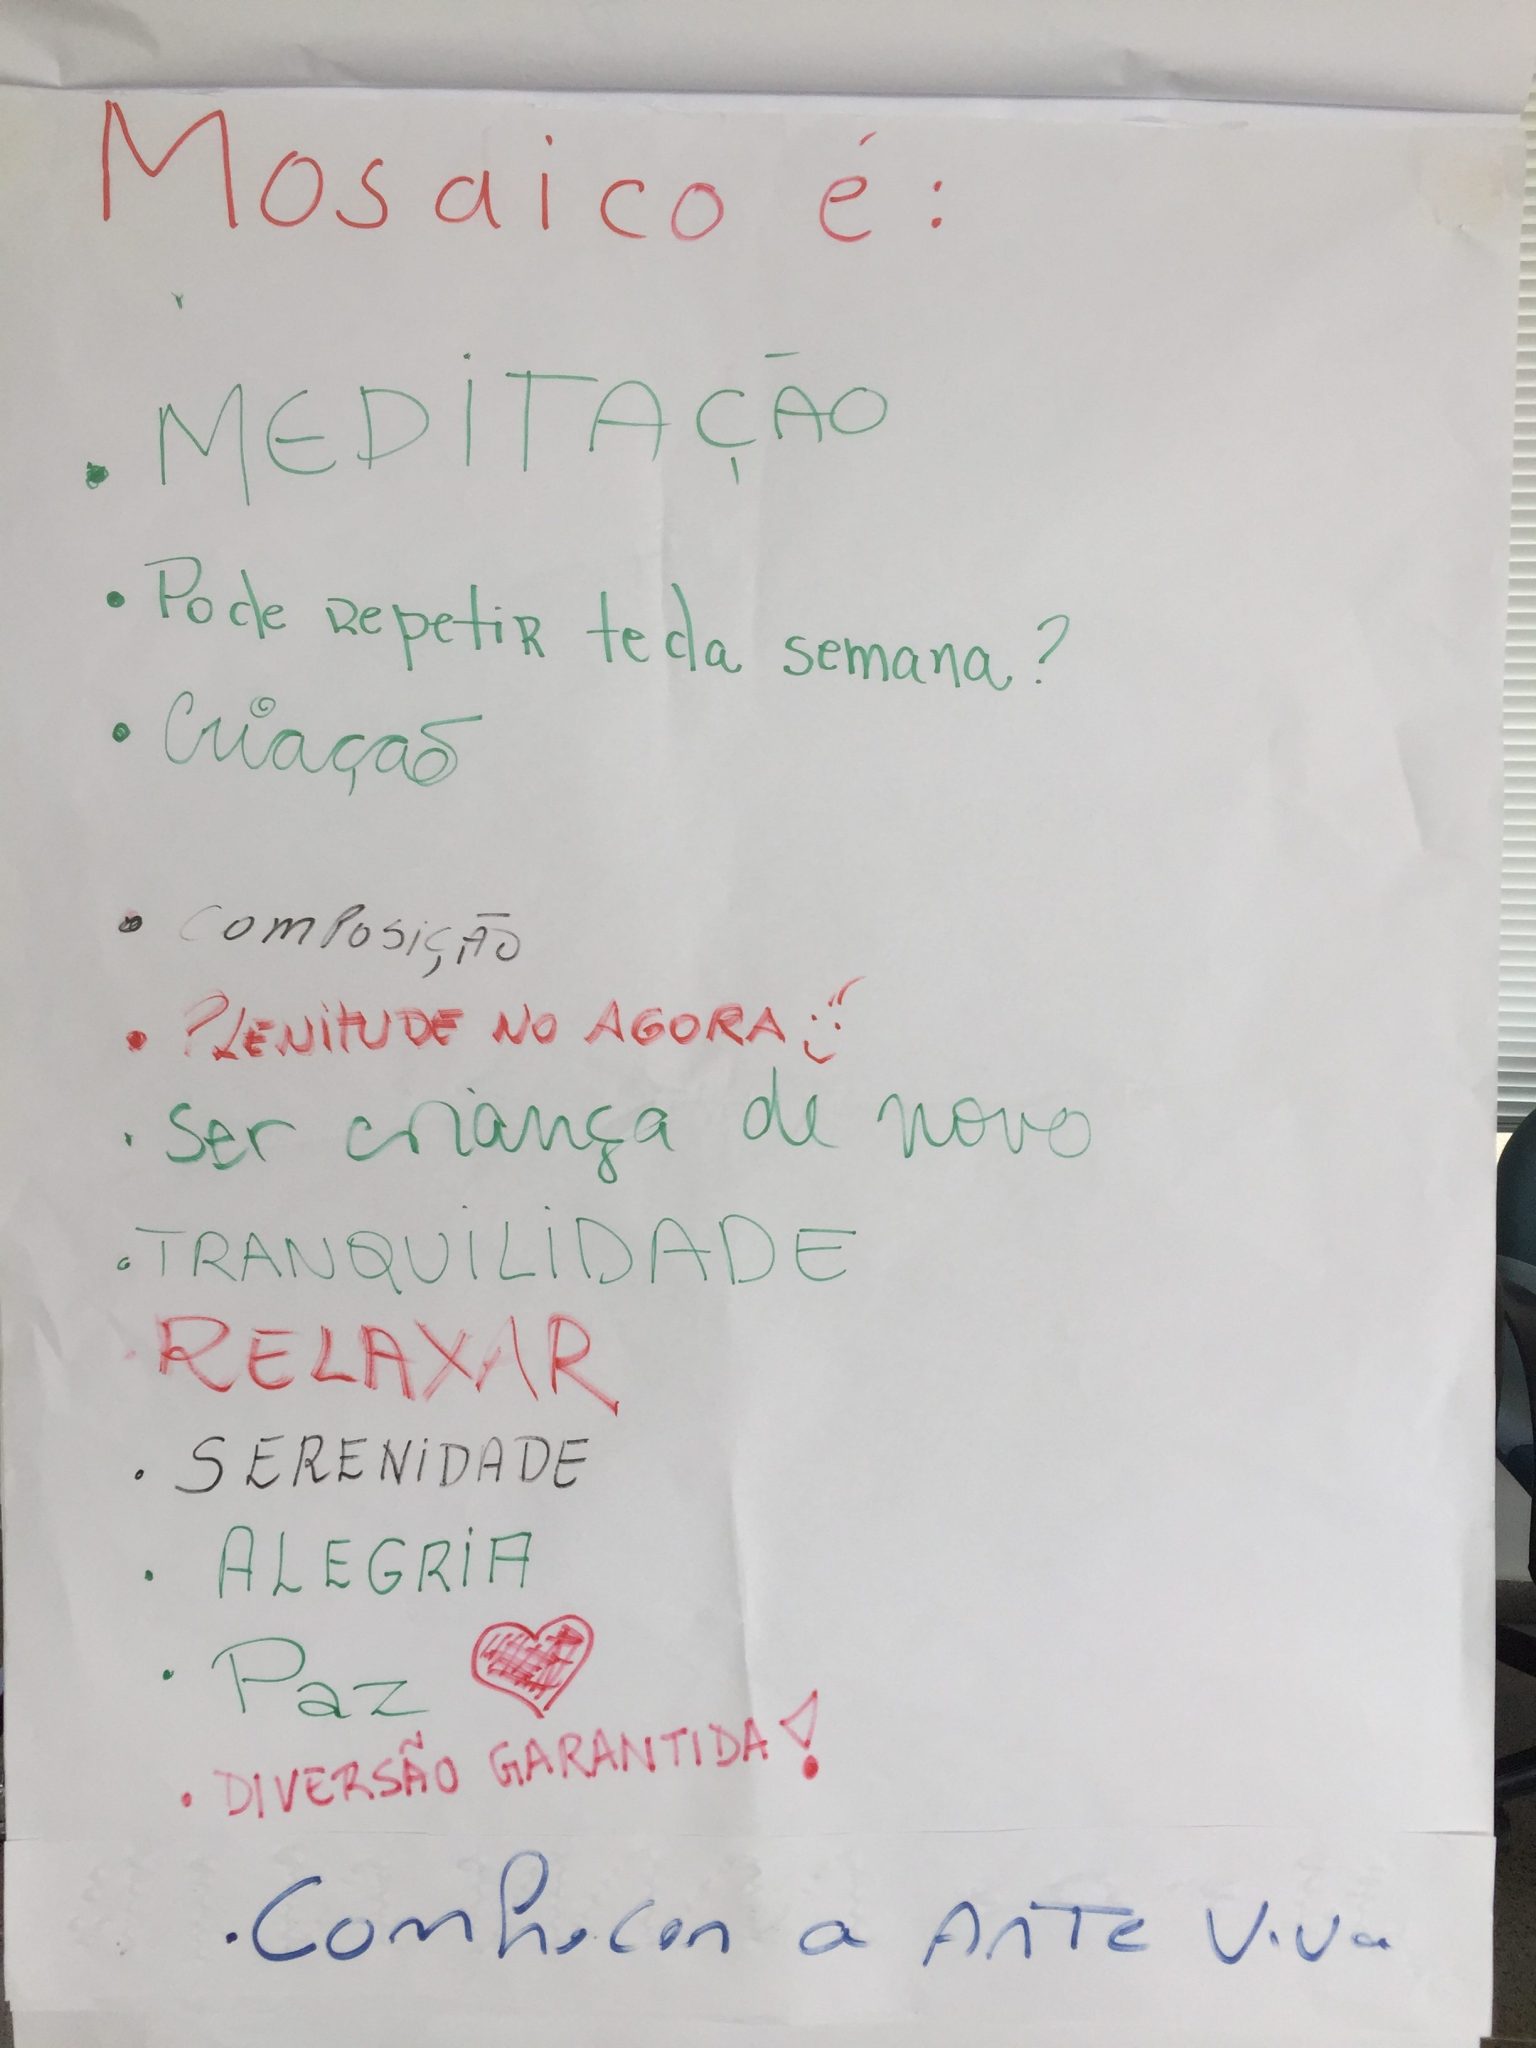 Mosaico é:
• MEDITAÇÃO
• Pode repetir toda semana?
• Criação
• COMPOSIÇÃO
• PLENITUDE NO AGORA
• Ser criança de novo
• TRANQUILIDADE
• RELAXAR
• SERENIDADE
• ALEGRIA
• Paz
• DIVERSÃO GARANTIDA!
• Conhecer a ARTE Viva